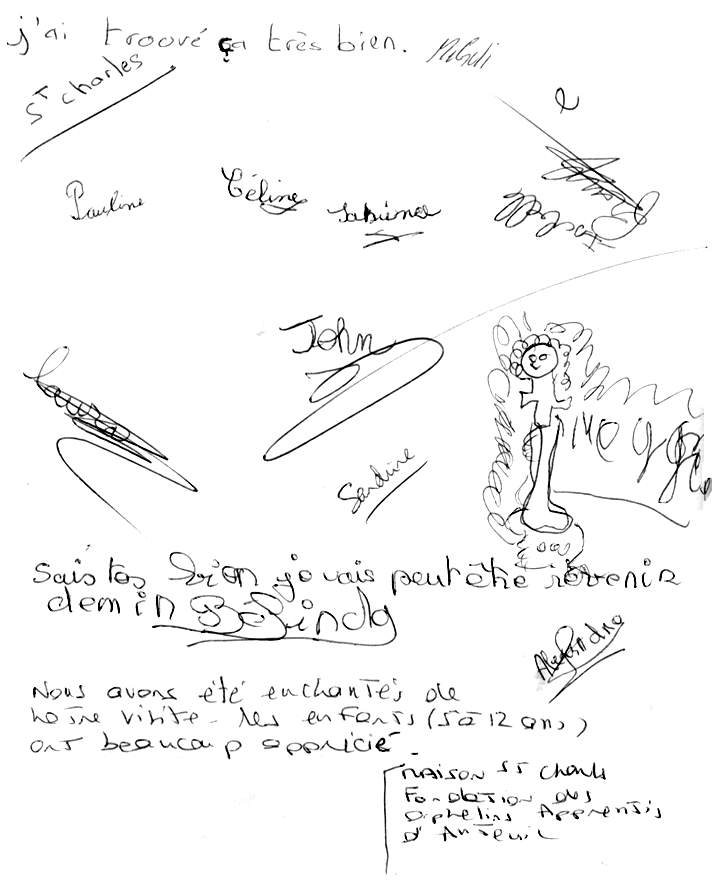 j'ai troové ça très bien.
St charles
Pauline
Céline
Sabrina
John
Sandrine
sais tes bien je vais peut êthe revenir
demin Bélinda
Alexandre
Nous avons été enchantés de
notre visite. Les enfants (5 à 12 ans)
ont beaucoup apprécié.
MAISON St Charles
Fondation des
Orphelins Apprentis
d'Auteuil